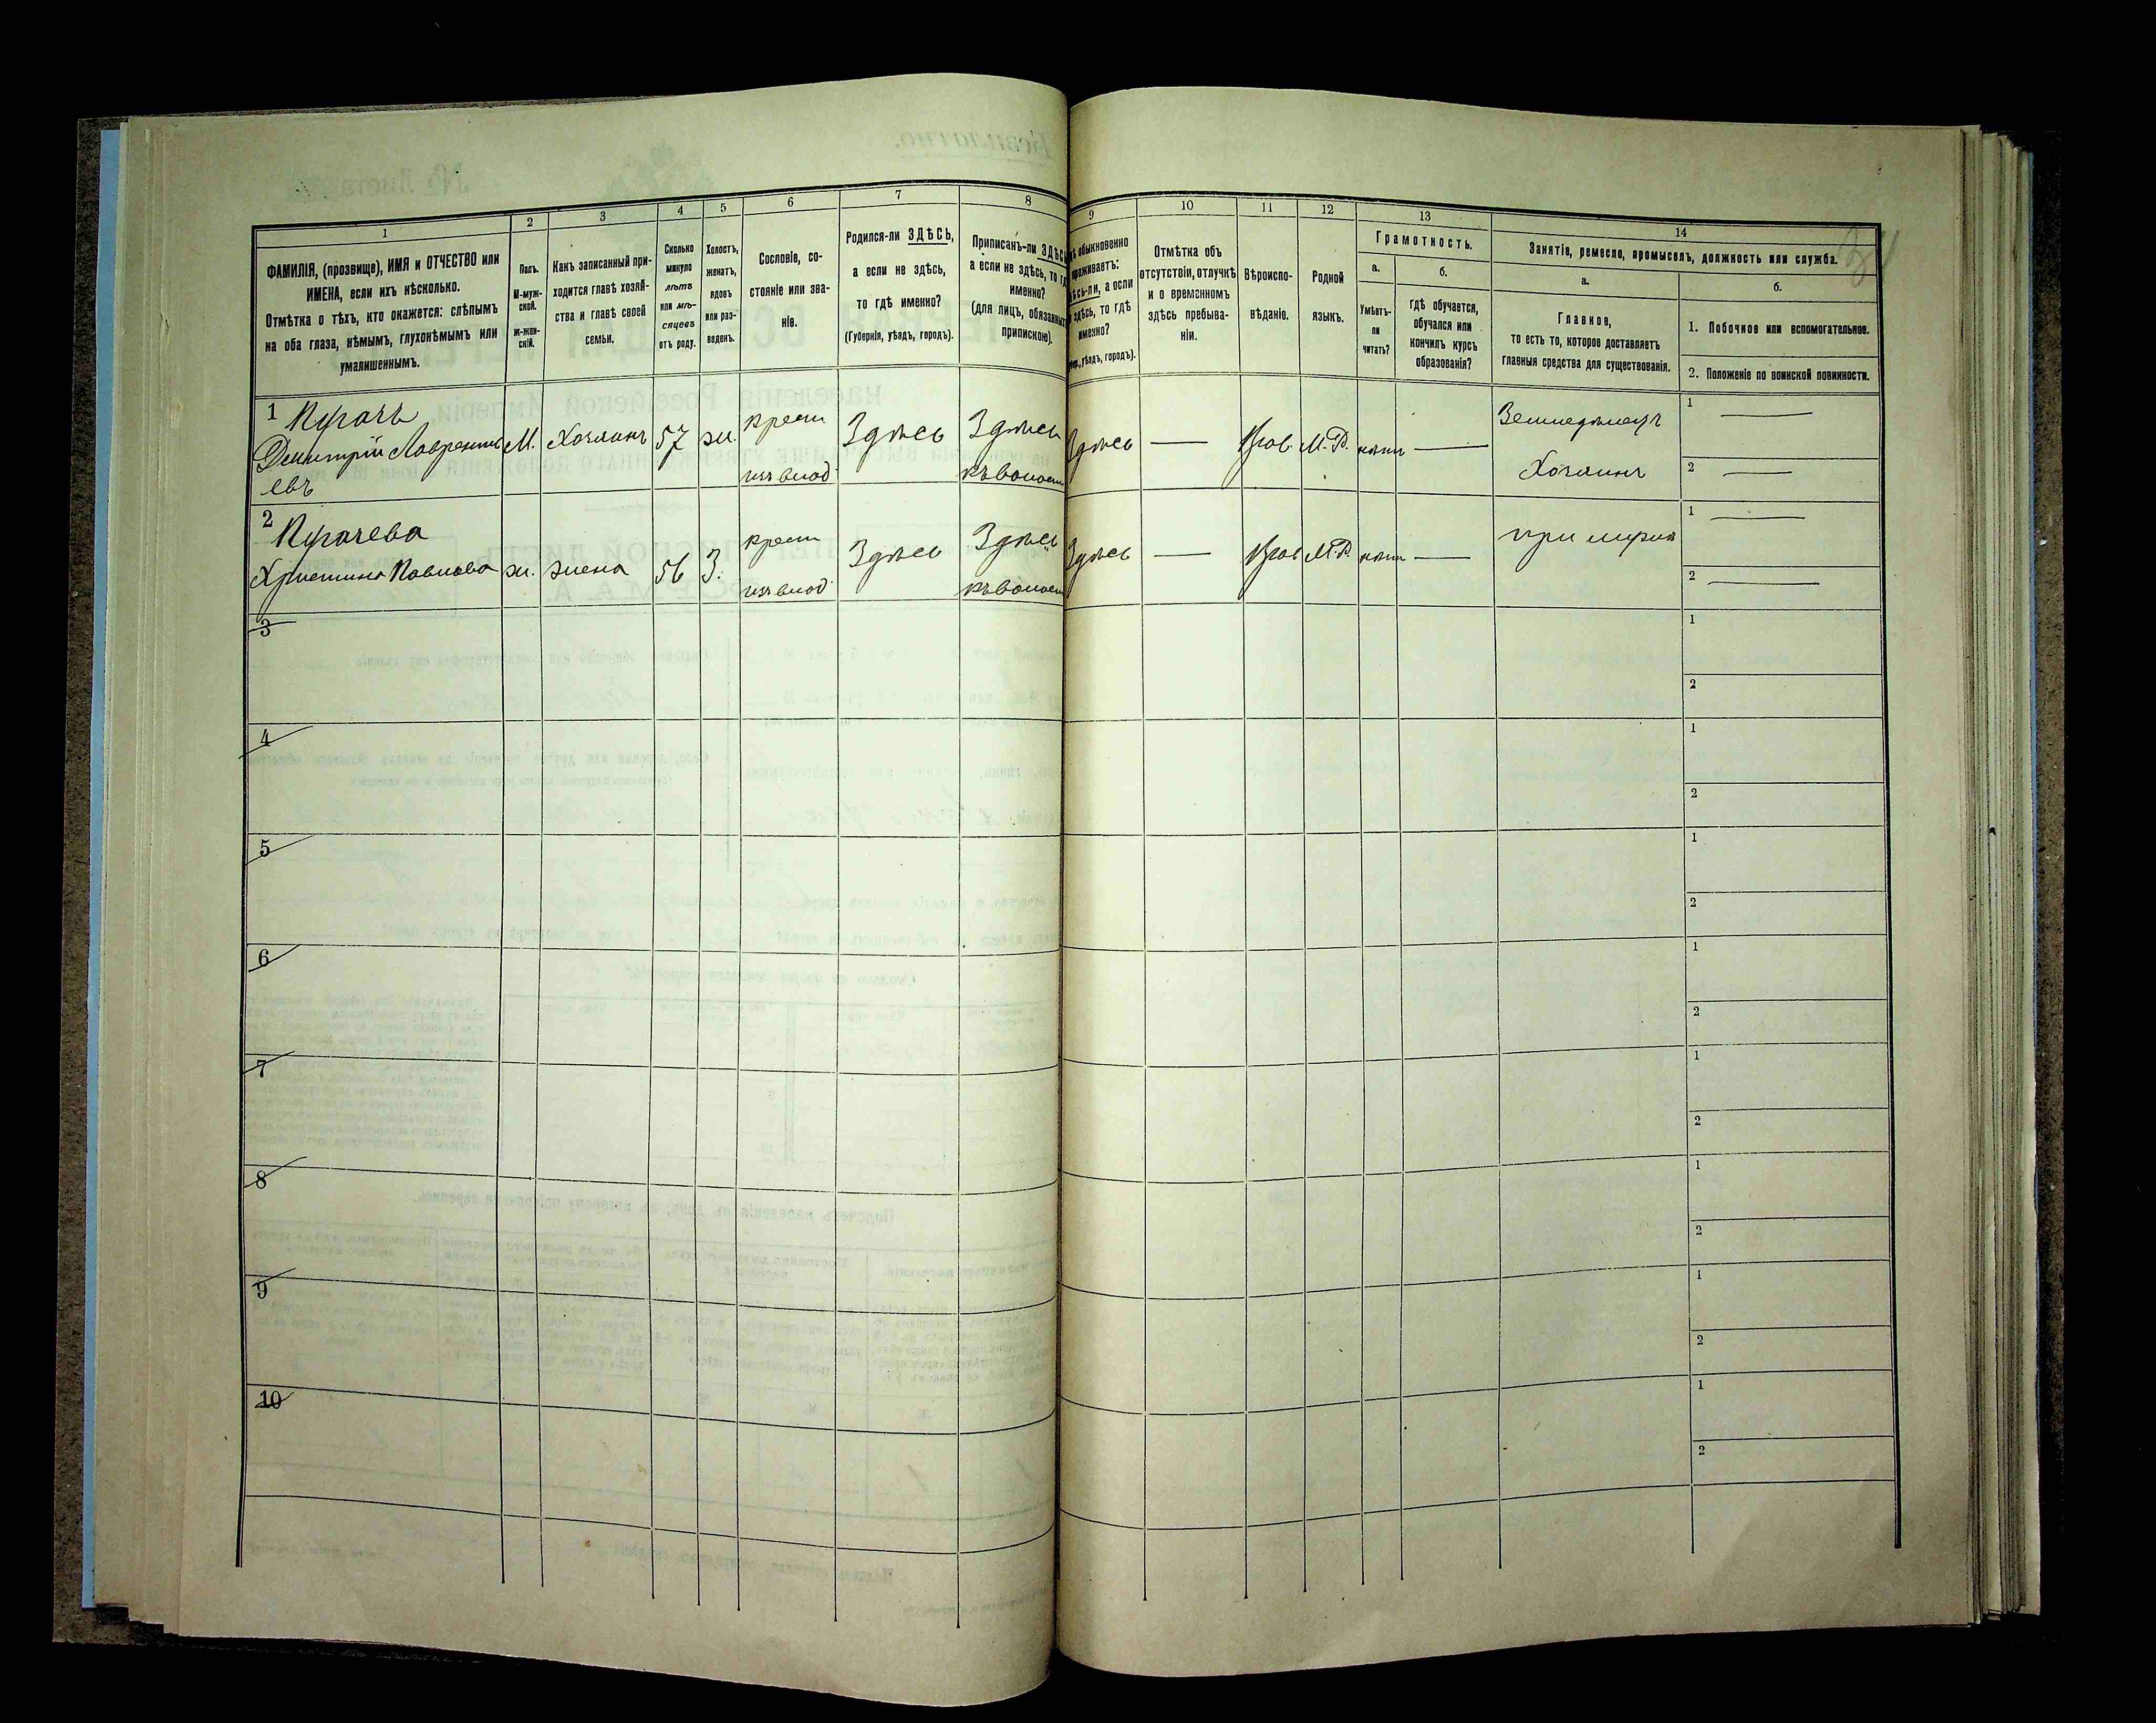 1
2
3
4
5
6
7
8
9
10
11
12
13
14
ФАМИЛІЯ, (прозвище), ИМЯ и ОТЧЕСТВО или
ИМЕНА, если ихъ нѣсколько.
Отмѣтка о тѣхъ, кто окажется: слѣпымъ
на оба глаза, нѣмымъ, глухонѣмымъ или
умалишеннымъ.
Полъ.
М-муж-
ской.
Ж-жен-
скій.
Какъ записанный при-
ходится главѣ хозяй-
ства и главѣ своей
семьи.
Сколько
минуло
лѣтъ
или мѣ-
сяцевъ
отъ роду.
Холостъ,
женатъ,
вдовъ
или раз-
веденъ.
Сословіе, со-
стояніе или зва-
ніе.
Родился-ли ЗДѢСЬ,
а если не здѣсь,
то гдѣ именно?
(Губернія, уѣздъ, городъ).
Приписанъ-ли ЗДѢСЬ
а если не здѣсь, то гдѣ
именно?
(для лицъ, обязанныхъ
припискою).
обыкновенно
проживаетъ:
а если
здѣсь, то гдѣ
именно?
уѣздъ, городъ).
Отмѣтка объ
отсутствіи, отлучкѣ
и о временномъ
здѣсь пребыва-
ніи.
Вѣроиспо-
вѣданіе.
Родной
языкъ.
Грамотность.
а.
б.
Умѣетъ-
ли
читать?
гдѣ обучается,
обучался или
кончилъ курсъ
образованія?
Занятія, ремесло, промыселъ, должность или служба.
а.
б.
Главное,
то есть то, которое доставляетъ
главныя средства для существованія.
1. Побочное или вспомогательное.
2. Положеніе по воинской повинности.
1 Пугачъ
Дмитрій Лаврентьевъ
М. Хозяинъ 57 ж. крест. изъ влад. Здѣсь Здѣсь къ волости Здѣсь — Прав. М.-Р. нѣтъ — Земледѣлецъ Хозяинъ
1 —
2 —
2 Пугачева
Христина Павлова ж. жена 56 З. крест. изъ влад. Здѣсь Здѣсь къ волости Здѣсь — Прав. М.-Р. нѣтъ — при мужѣ
1 —
2 —
3
1
2
4
1
2
5
1
2
6
1
2
7
1
2
8
1
2
9
1
2
10
1
2